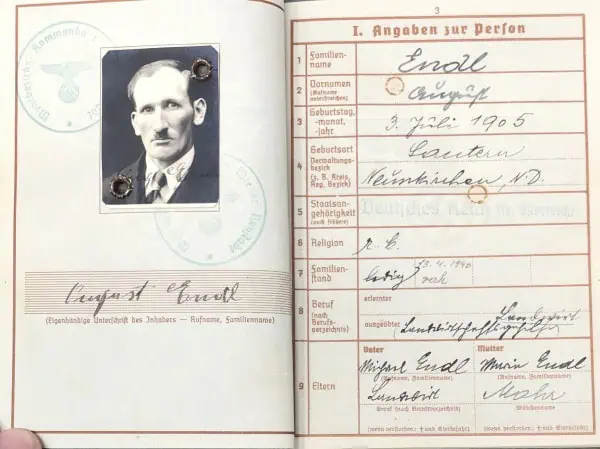 August Endl
(Eigenhändige Unterschrift des Inhabers — Rufname, Familienname)
3
I. Angaben zur Person
1 Familien-
name
Endl
2 Vornamen
(Rufname
unterstreichen)
August
3 Geburtstag,
-monat,
-jahr
3. Juli 1905
4 Geburtsort
Verwaltungs-
bezirk
(z. B. Kreis,
Reg. Bezirk)
Neunkirchen, N.D.
5 Staatsan-
gehörigkeit
(auch frühere)
Deutsches Reich
6 Religion
r. k.
7 Familien-
stand
ledig
13. 4. 1940
verh
8 Beruf
(nach
Berufs-
verzeichnis)
erlernter
Landwirt
ausgeübter
Landwirtschaftsgehilfe
9 Eltern
Vater
Mutter
Michael Endl
Maria Endl
(Rufname, Familienname)
(Rufname, Familienname)
Landwirt
Mohr
Beruf (nach Berufsverzeichnis)
Mädchenname
(wenn verstorben: † und Sterbejahr)
(wenn verstorben: † und Sterbejahr)